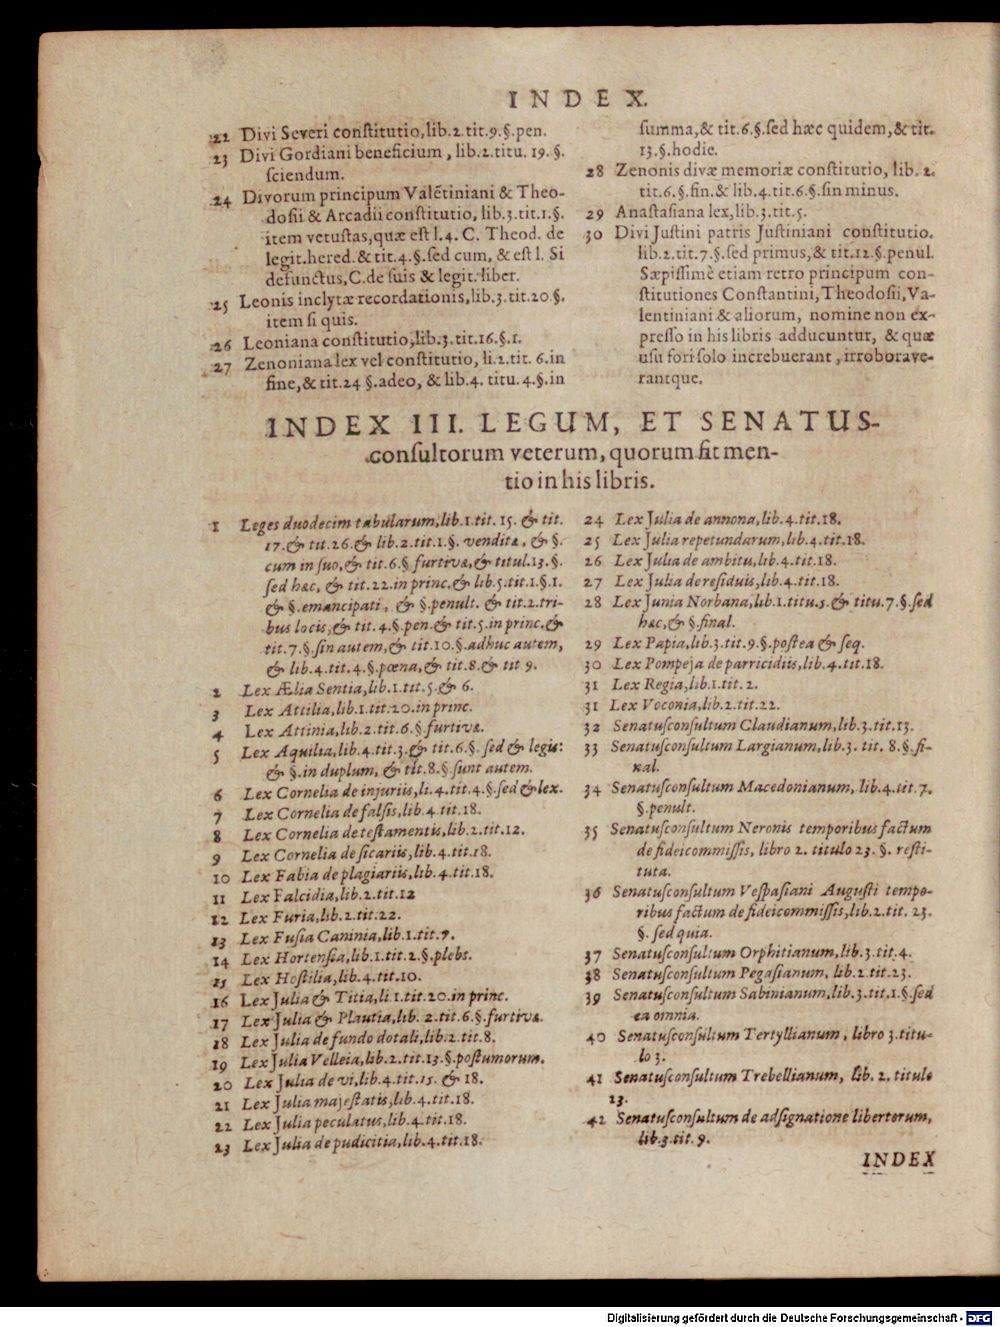 INDEX.
22 Divi Severi conſtitutio, lib. 2. tit. 9. §. pen.
23 Divi Gordiani beneficium, lib. 2. titu. 19. §.
ſciendum.
24 Divorum principum Valẽtiniani & Theo-
doſii & Arcadii conſtitutio, lib. 3. tit. 1. §.
item vetuſtas, quæ eſt l. 4. C. Theod. de
legit. hered. & tit. 4. §. ſed cum, & eſt l. Si
defunctus, C. de ſuis & legit. liber.
25 Leonis inclytæ recordationis, lib. 3. tit. 20. §.
item ſi quis.
26 Leoniana conſtitutio, lib. 3. tit. 16. §. 1.
27 Zenoniana lex vel conſtitutio, li. 2. tit. 6. in
fine, & tit. 24 §. adeo, & lib. 4. titu. 4. §. in
ſumma, & tit. 6. §. ſed hæc quidem, & tit.
13. §. hodie.
28 Zenonis divæ memoriæ conſtitutio, lib. 2.
tit. 6. §. fin. & lib. 4. tit. 6. §. ſin minus.
29 Anaſtaſiana lex, lib. 3. tit. 5.
30 Divi Juſtini patris Juſtiniani conſtitutio.
lib. 2. tit. 7. §. ſed primus, & tit. 12. §. penul.
Sæpiſſimè etiam retro principum con-
ſtitutiones Conſtantini, Theodoſii, Va-
lentiniani & aliorum, nomine non ex-
preſſo in his libris adducuntur, & quæ
uſu fori ſolo increbuerant, irroborave-
rantque.
INDEX III. LEGUM, ET SENATUS-
conſultorum veterum, quorum fit men-
tio in his libris.
1 Leges duodecim tabularum, lib. 1. tit. 15. & tit.
17. & tit. 26. & lib. 2. tit. 1. §. venditæ, & §.
cum in ſuo, & tit. 6. §. furtivæ, & titul. 13. §.
ſed hæc, & tit. 22. in princ. & lib. 5. tit. 1. §. 1.
& §. emancipati, & §. penult. & tit. 2. tri-
bus locis, & tit. 4. §. pen. & tit. 5. in princ. &
tit. 7. §. ſin autem, & tit. 10. §. adhuc autem,
& lib. 4. tit. 4. §. pœna, & tit. 8. & tit 9.
2 Lex Ælia Sentia, lib. 1. tit. 5. & 6.
3 Lex Attilia, lib. 1. tit. 20. in princ.
4 Lex Attinia, lib. 2. tit. 6. §. furtivæ.
5 Lex Aquilia, lib. 4. tit. 3. & tit. 6. §. ſed & legis:
& §. in duplum, & tit. 8. §. ſunt autem.
6 Lex Cornelia de injuriis, li. 4. tit. 4. §. ſed & lex.
7 Lex Cornelia de falſis, lib. 4. tit. 18.
8 Lex Cornelia de teſtamentis, lib. 2. tit. 12.
9 Lex Cornelia de ſicariis, lib. 4. tit. 18.
10 Lex Fabia de plagiariis, lib. 4. tit. 18.
11 Lex Falcidia, lib. 2. tit. 12
12 Lex Furia, lib. 2. tit. 22.
13 Lex Fuſia Caninia, lib. 1. tit. 7.
14 Lex Hortenſia, lib. 1. tit. 2. §. plebs.
15 Lex Hoſtilia, lib. 4. tit. 10.
16 Lex Julia & Titia, li. 1. tit. 20. in princ.
17 Lex Julia & Plautia, lib. 2. tit. 6. §. furtivæ.
18 Lex Julia de fundo dotali, lib. 2. tit. 8.
19 Lex Julia Velleia, lib. 2. tit. 13. §. poſtumorum.
20 Lex Julia de vi, lib. 4. tit. 15. & 18.
21 Lex Julia majeſtatis, lib. 4. tit. 18.
22 Lex Julia peculatus, lib. 4. tit. 18.
23 Lex Julia de pudicitia, lib. 4. tit. 18.
24 Lex Julia de annona, lib. 4. tit. 18.
25 Lex Julia repetundarum, lib. 4. tit. 18.
26 Lex Julia de ambitu, lib. 4. tit. 18.
27 Lex Julia de reſiduis, lib. 4. tit. 18.
28 Lex Junia Norbana, lib. 1. titu. 5. & titu. 7. §. ſed
hæc, & §. final.
29 Lex Papia, lib. 3. tit. 9. §. poſtea & ſeq.
30 Lex Pompeja de parricidiis, lib. 4. tit. 18.
31 Lex Regia, lib. 1. tit. 2.
31 Lex Voconia, lib. 2. tit. 22.
32 Senatuſconſultum Claudianum, lib. 3. tit. 13.
33 Senatuſconſultum Largianum, lib. 3. tit. 8. §. fi-
nal.
34 Senatuſconſultum Macedonianum, lib. 4. tit. 7.
§. penult.
35 Senatuſconſultum Neronis temporibus factum
de fideicommiſſis, libro 2. titulo 23. §. reſti-
tuta.
36 Senatuſconſultum Veſpaſiani Auguſti tempo-
ribus factum de fideicommiſſis, lib. 2. tit. 23.
§. ſed quia.
37 Senatuſconſultum Orphitianum, lib. 3. tit. 4.
38 Senatuſconſultum Pegaſianum, lib. 2. tit. 23.
39 Senatuſconſultum Sabinianum, lib. 3. tit. 1. §. ſed
ea omnia.
40 Senatuſconſultum Tertyllianum, libro 3. titu-
lo 3.
41 Senatuſconſultum Trebellianum, lib. 2. titulo
23.
42 Senatuſconſultum de adſignatione libertorum,
lib. 3. tit. 9.
INDEX
Digitalisierung gefördert durch die Deutsche Forschungsgemeinschaft - DFG